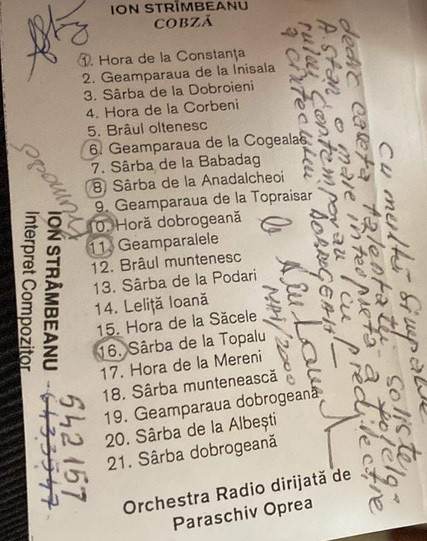 ION STRÎMBEANU
COBZĂ
1. Hora de la Constanța
2. Geamparaua de la Inisala
3. Sârba de la Dobroieni
4. Hora de la Corbeni
5. Brâul oltenesc
6. Geamparaua de la Cogealac
7. Sârba de la Babadag
8. Sârba de la Anadalcheoi
9. Geamparaua de la Topraisar
10. Horă dobrogeană
11. Geamparalele
12. Brâul muntenesc
13. Sârba de la Podari
14. Leliță Ioană
15. Hora de la Săcele
16. Sârba de la Topalu
17. Hora de la Mereni
18. Sârba muntenească
19. Geamparaua dobrogeană
20. Sârba de la Albești
21. Sârba dobrogeană
Orchestra Radio dirijată de
Paraschiv Oprea
ION STRÂMBEANU
Interpret Compozitor
642157
Cu multă simpatie
dedic caseta talentatei soliste
o mare interpretă a folclo-
rului contemporan cu predilecție
a cântecului dobrogean
MAI/2000